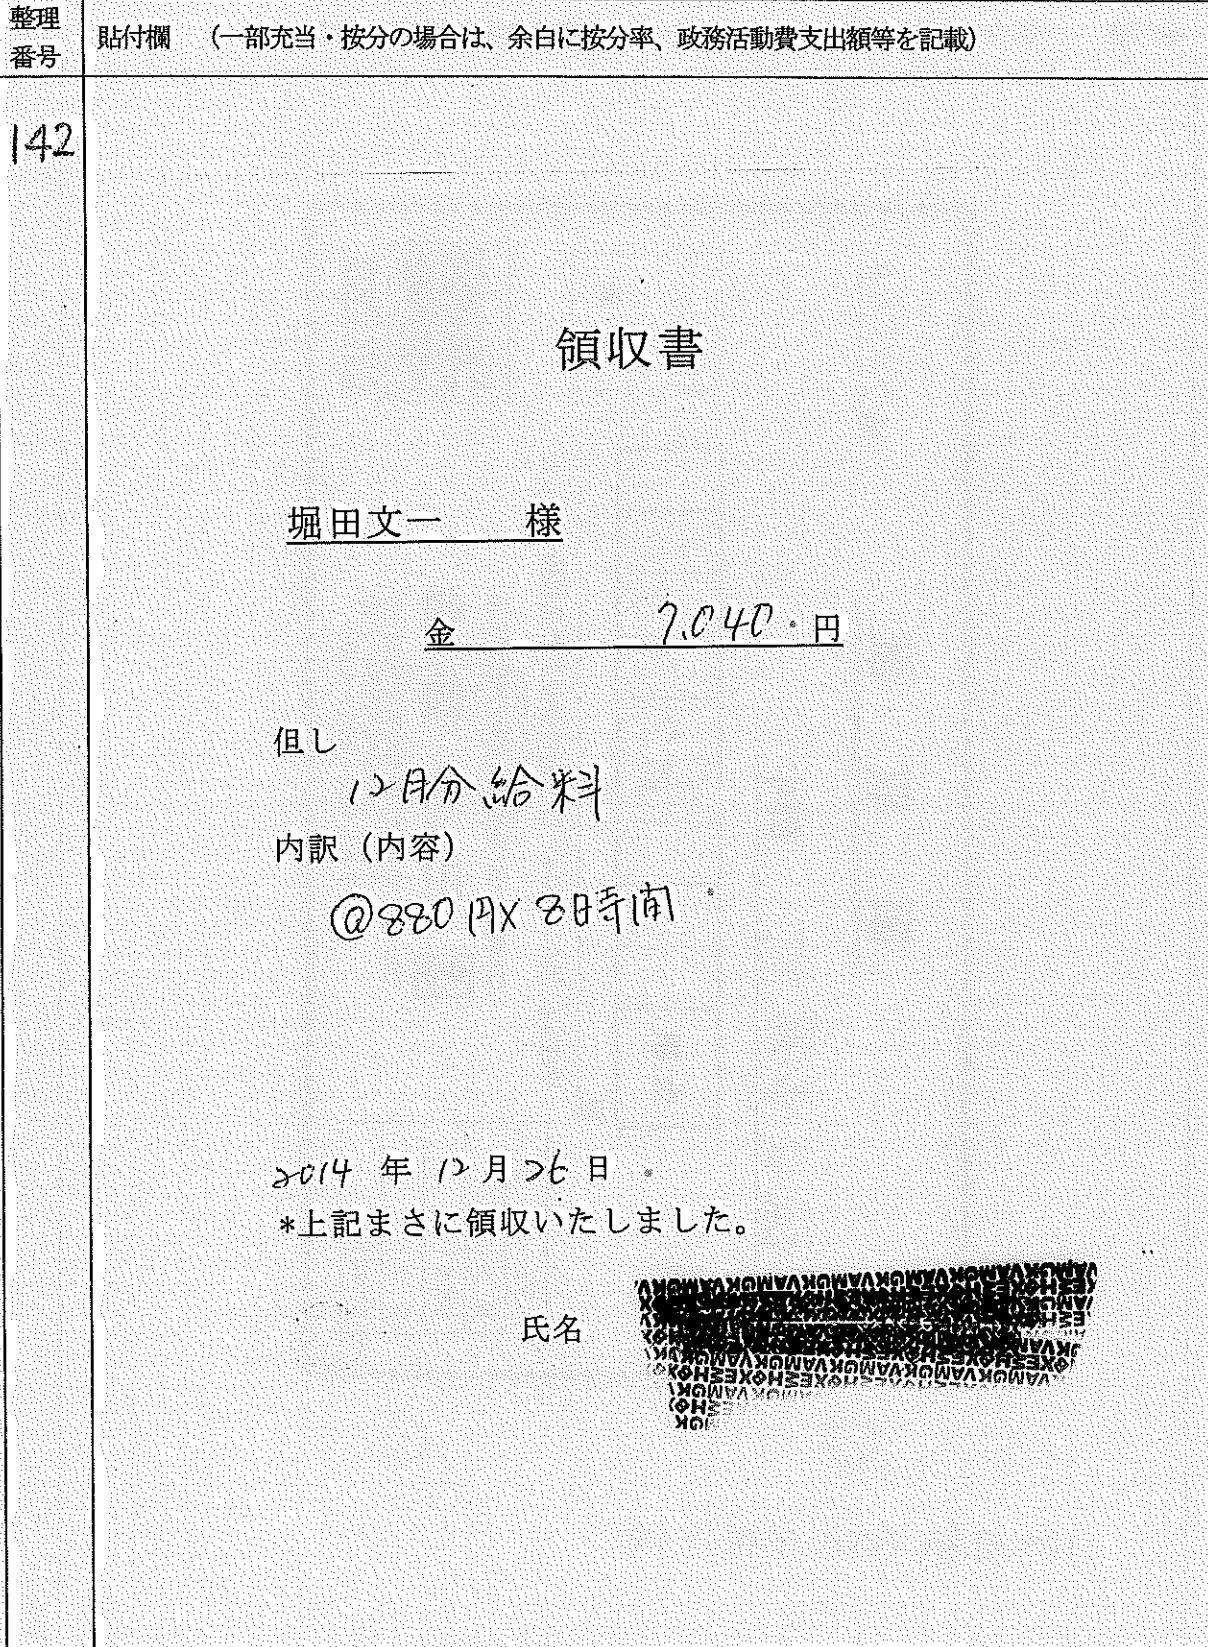 整理番号
貼付欄 (一部充当・按分の場合は、余白に按分率、政務活動費支出額等を記載)
142
領収書
堀田文一 様
金 7.040 円
但し
12月分給料
内訳 (内容)
@880円×8時間
2014 年 12 月 26 日
*上記まさに領収いたしました。
氏名